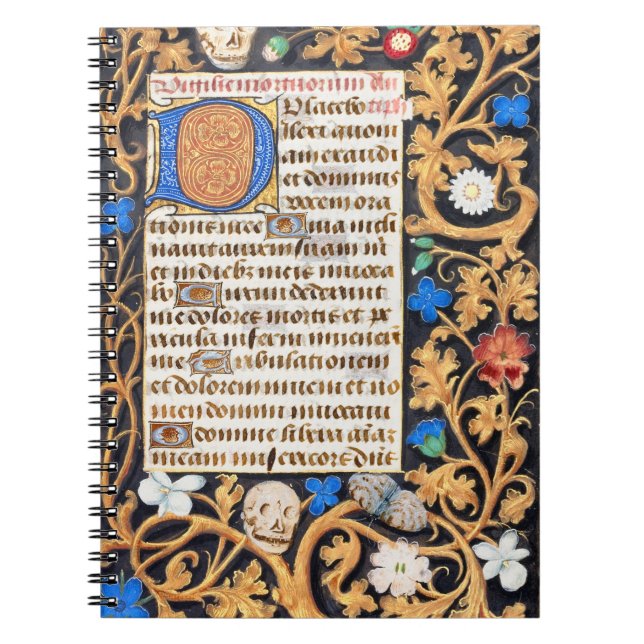 Vigilie mortuorum An
Placebo tiph
Dilexi quoni
am exaudi
et dominus
vocem ora
tionis mee Quia incli
navit aurem suam mi
et in diebz meis invoca
bo Circumdederunt
me dolores mortis et pe
ricula inferni invener
me Tribulationem
et dolorem inveni et no
men domini invocavi
O domine libera aiaz
meam